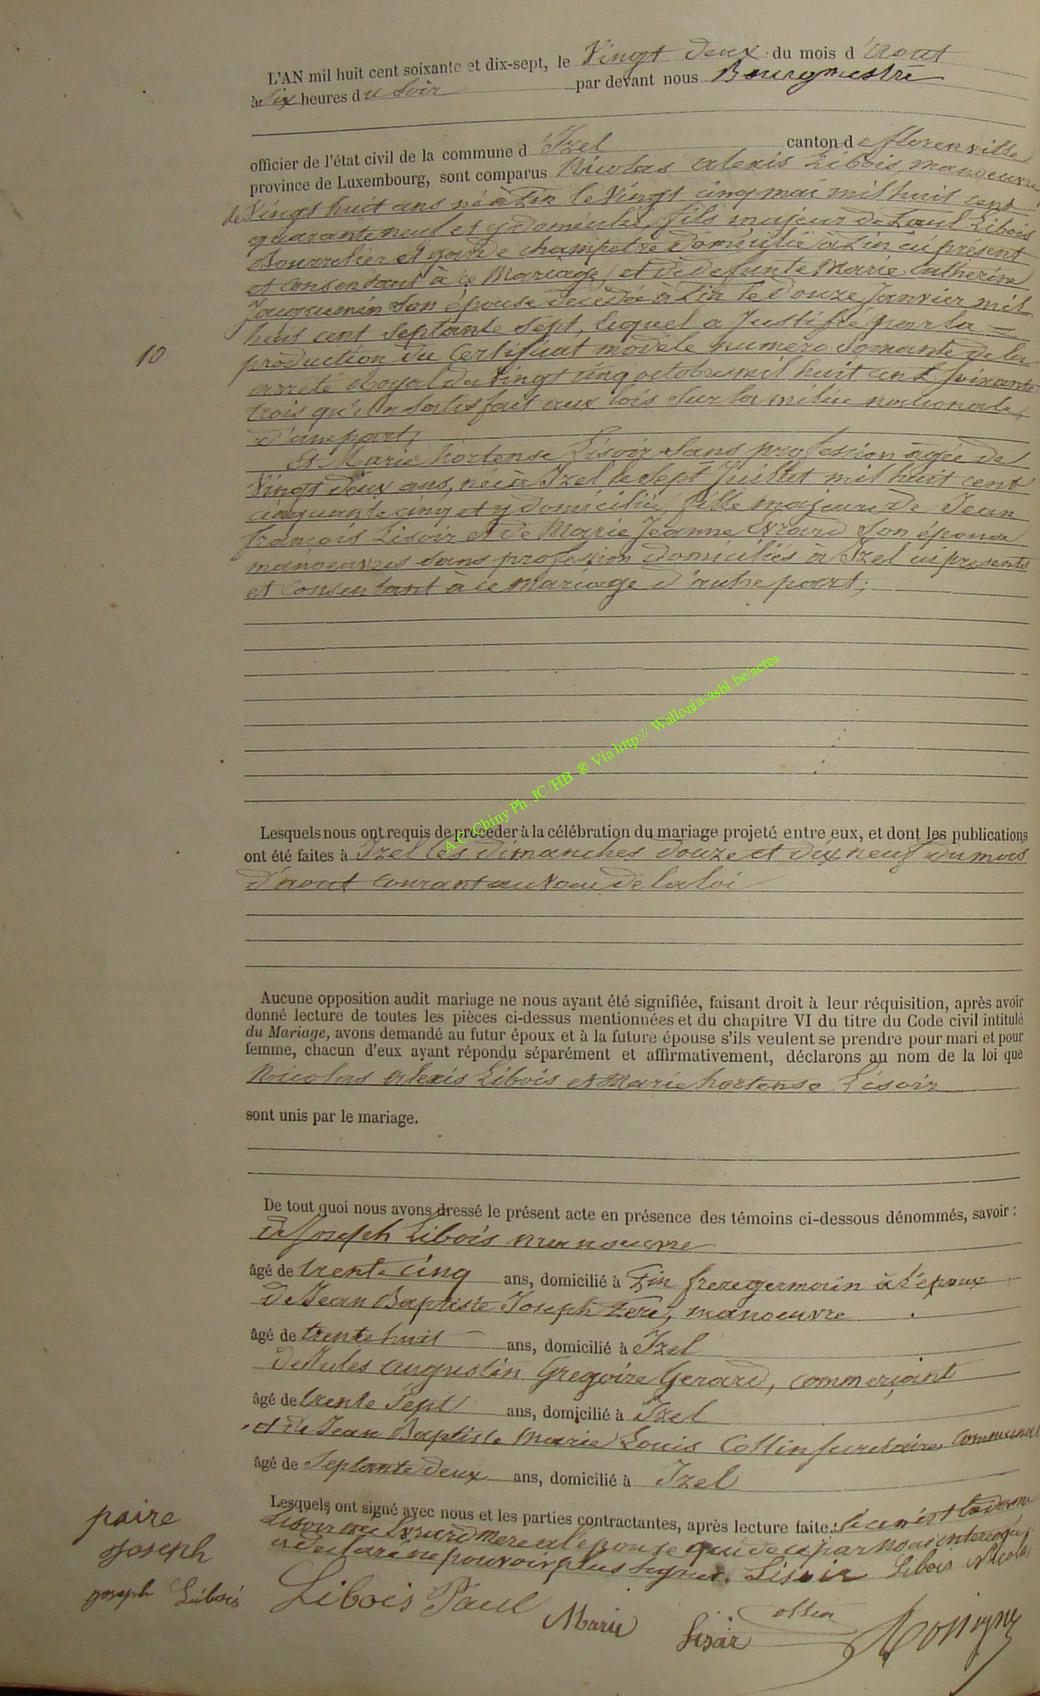 L'AN mil huit cent soixante et dix-sept, le Vingt deux du mois d'aout
à Six heures du Soir par devant nous Bourgmestre
officier de l'état civil de la commune d'Izel canton de florenville
province de Luxembourg, sont comparus Nicolas alexis Libois manoeuvre
de Vingt huit ans né à Pin le Vingt cinq mai mil huit cent
quarante neuf et y domicilié, fils majeur de Paul Libois
Bourrelier et garde champetre domicilié à Pin ici présent
et consentant à ce Mariage, et de defunte Marie Catherine
Jacquemin Son épouse decedée à Pin le Douze Janvier mil
huit cent Septante Sept, lequel a Justifié par la =
production du Certificat modele numéro Soixante de la
10
arrêté Royal du Vingt cinq octobre mil huit cent soixante
trois qu'il a Satisfait aux lois Sur la milice nationale
d'une part;
Et Marie hortense Lisoir Sans profession agée de
Vingt deux ans, née à Izel le Sept Juillet mil huit cent
cinquante cinq et y domiciliée, fille majeure de Jean
françois Lisoir et de Marie Jeanne Evrard Son épouse
manoeuvres Sans profession domiciliés à Izel ici présents
et consentant à ce mariage d'autre part;
Lesquels nous ont requis de procéder à la célébration du mariage projeté entre eux, et dont les publications
ont été faites à Izel les dimanches douze et dix neuf du mois
d'aout courant au voeu de la loi
A.C. Chiny Ph. JC/HB ® Via http:// Wallonia-asbl.be/actes
Aucune opposition audit mariage ne nous ayant été signifiée, faisant droit à leur réquisition, après avoir
donné lecture de toutes les pièces ci-dessus mentionnées et du chapitre VI du titre du Code civil intitulé
du Mariage, avons demandé au futur époux et à la future épouse s'ils veulent se prendre pour mari et pour
femme, chacun d'eux ayant répondu séparément et affirmativement, déclarons au nom de la loi que
Nicolas alexis Libois et Marie hortense Lisoir
sont unis par le mariage.
De tout quoi nous avons dressé le présent acte en présence des témoins ci-dessous dénommés, savoir :
de Joseph Libois manoeuvre
âgé de trente cinq ans, domicilié à Pin frere germain à l'époux
de Jean Baptiste Joseph manoeuvre
âgé de trente huit ans, domicilié à Izel
de Jules augustin Gregoire Gerard, commerçant
âgé de trente Sept ans, domicilié à Izel
et de Jean Baptiste Marie Louis Collin Secretaire communal
âgé de Septante deux ans, domicilié à Izel
Lesquels ont signé avec nous et les parties contractantes, après lecture faite.
Lisoir née Evrard mere de l'epouse qui de ce par nous interrogée
a declaré ne pouvoir plus Signer. Lisoir Libois Nicolas
paire
Joseph
Joseph Libois
Libois Paul
Marie Lisoir
Collin